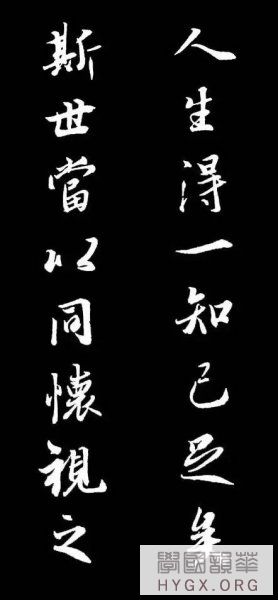 人生得一知己足矣
斯世當以同懷視之
學國韻華
HYGX.ORG